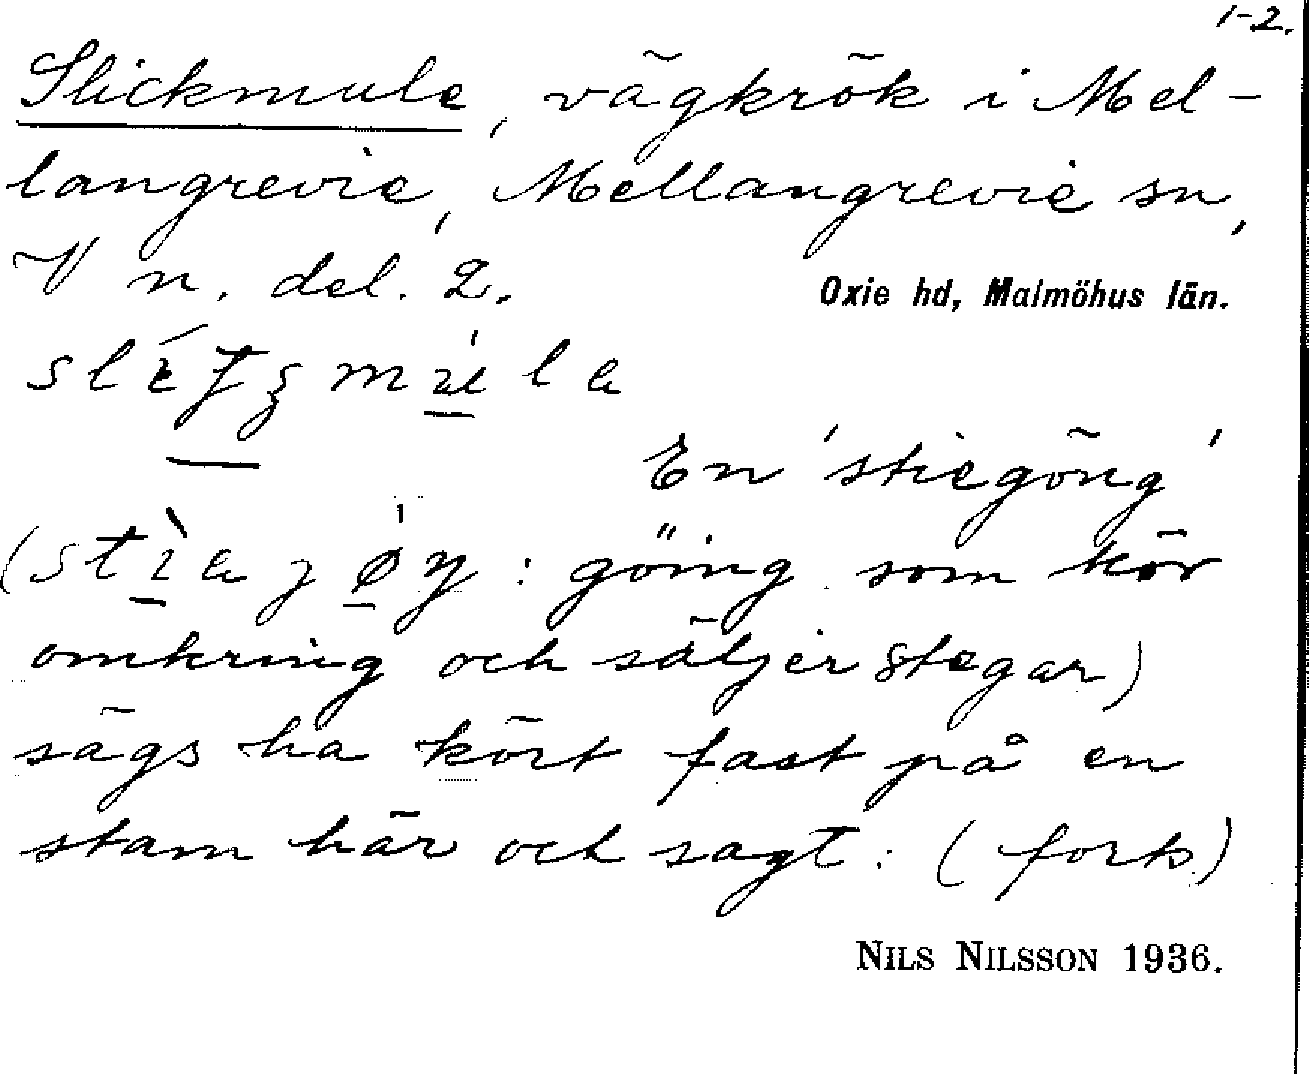 1-2.
Slickmule, vägkrök i Mel-
langrevie, Mellangrevie sn,
V n. del. 2.
Oxie hd, Malmöhus län.
En 'stiegöng'
: göing som kör
omkring och säljer stegar)
sägs ha kört fast på en
stam här och sagt: (forts)
NILS NILSSON 1936.